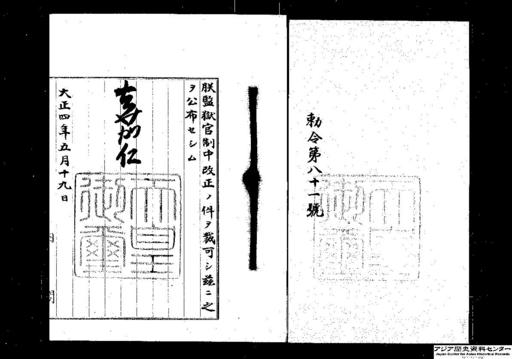 勅令第八十一號
朕監獄官制中改正ノ件ヲ裁可シ茲ニ之
ヲ公布セシム
嘉仁
天皇御璽
大正四年五月十九日
内閣
アジア歴史資料センター
Japan Center for Asian Historical Records